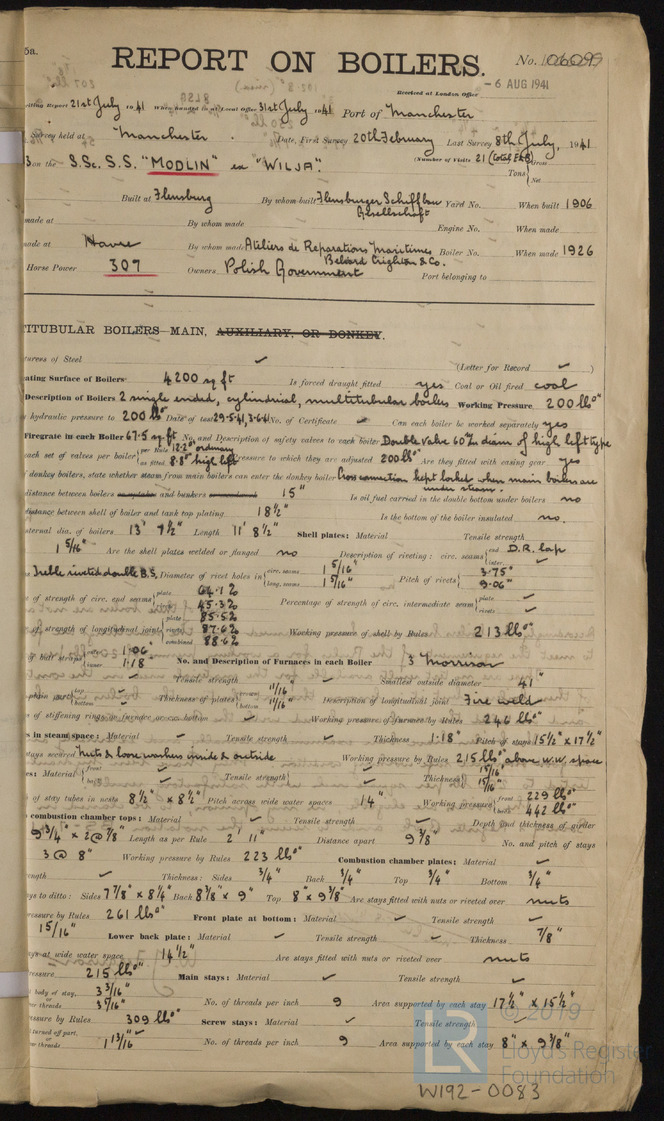 5a.
REPORT ON BOILERS.
No. 106099
Received at London Office - 6 AUG 1941
Report 21st July 1941 When handed in at Local Office 31st July 1941 Port of Manchester
Survey held at Manchester Date, First Survey 20th February Last Survey 8th July, 1941
(Number of Visits 21 (total E&B) Gross
on the S.Sc. S.S. "MODLIN" ex "WILJA". Tons Net
Built at Flensburg By whom built Flensburger Schiffbau Gesellschaft Yard No. When built 1906
made at By whom made Engine No. When made
made at Havre By whom made Ateliers de Reparations Maritimes Beliard Crighton & Co. Boiler No. When made 1926
Horse Power 307 Owners Polish Government Port belonging to
ITUBULAR BOILERS—MAIN, AUXILIARY, OR DONKEY.
of Steel ✓ (Letter for Record ✓ )
ating Surface of Boilers 4200 sq ft Is forced draught fitted yes Coal or Oil fired coal
Description of Boilers 2 single ended, cylindrical, multitubular boilers Working Pressure 200 lbs□"
hydraulic pressure to 200 lbs□" Date of test 29.5.41, 3.6.41 No. of Certificate Can each boiler be worked separately yes
Firegrate in each Boiler 67.5 sq ft No. and Description of safety valves to each boiler Double valve 60 m/m diam of high lift type
each set of valves per boiler per Rule 12.2□" ordinary as fitted 8.8□" high lift pressure to which they are adjusted 200 lbs□" Are they fitted with easing gear yes
donkey boilers, state whether steam from main boilers can enter the donkey boiler Cross connection kept locked when main boilers are under steam.
distance between boilers and bunkers 15" Is oil fuel carried in the double bottom under boilers no
distance between shell of boiler and tank top plating 18½" Is the bottom of the boiler insulated no.
ternal dia. of boilers 13' 7½" Length 11' 8½" Shell plates: Material Tensile strength
1 5/16" Are the shell plates welded or flanged no Description of riveting: circ. seams end D.R. lap inter. ✓
Treble riveted double B.S. Diameter of rivet holes in circ. seams 1 5/16" long. seams 1 5/16" Pitch of rivets 3.75" 9.06"
of strength of circ. end seams plate 64.1% rivets 45.3% Percentage of strength of circ. intermediate seam plate ✓ rivets ✓
of strength of longitudinal joint plate 85.5% rivets 87.6% combined 88.6% Working pressure of shell by Rules 213 lbs□"
of butt straps outer 1.06 inner 1.18 No. and Description of Furnaces in each Boiler 3 Morrison
✓ Tensile strength ✓ Smallest outside diameter 41"
plain part top ✓ bottom ✓ Thickness of plates crown 11/16" bottom 11/16" Description of longitudinal joint Fire weld
of stiffening rings on furnace or c.c. bottom ✓ Working pressure of furnace by Rules 246 lbs□"
s in steam space: Material ✓ Tensile strength ✓ Thickness 1.18" Pitch of stays 15½" x 17½"
stays secured Nuts & loose washers inside & outside Working pressure by Rules 215 lbs□", above W.W. space
es: Material front ✓ back Tensile strength ✓ Thickness 15/16" 15/16"
of stay tubes in nests 8½" x 8½" Pitch across wide water spaces 14" Working pressure front 229 lbs□" back 442 lbs□"
combustion chamber tops: Material ✓ Tensile strength ✓ Depth and thickness of girder
9¾" x 2@⅞" Length as per Rule 2' 11" Distance apart 9⅜" No. and pitch of stays
3 @ 8" Working pressure by Rules 223 lbs□" Combustion chamber plates: Material ✓
ength ✓ Thickness: Sides ¾" Back ¾" Top ¾" Bottom ¾"
ys to ditto: Sides 7⅞" x 8¼" Back 8⅜" x 9" Top 8" x 9⅜" Are stays fitted with nuts or riveted over nuts
ressure by Rules 261 lbs□" Front plate at bottom: Material ✓ Tensile strength ✓
15/16" Lower back plate: Material ✓ Tensile strength ✓ Thickness 7/8"
ys at wide water space 14½" Are stays fitted with nuts or riveted over nuts
ressure 215 lbs□" Main stays: Material ✓ Tensile strength ✓
body of stay, or over threads 3 3/16" 3 7/16" No. of threads per inch 9 Area supported by each stay 17½" x 15½"
ressure by Rules 309 lbs□" Screw stays: Material ✓ Tensile strength ✓
turned off part, or over threads ✓ 1 13/16" No. of threads per inch 9 Area supported by each stay 8" x 9⅜"
© 2019
LR Lloyd's Register Foundation
W192-0083